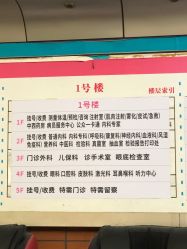 1号楼
楼层索引
1号楼
1F 挂号/收费 测量体温/预检/咨询 注射室(肌肉注射/雾化/皮试/急救)
中西药房 病员服务中心 公众一卡通 内科专家
2F 挂号/收费 普通内科 内科专科(呼吸科/康复科/神经内科/血液科/风湿
免疫科) 营养科 中医科 检验科 真菌室 抽血室 检验报告打印处
3F 门诊外科 儿保科 诊手术室 眼底检查室
4F 挂号/收费 眼科 口腔科 皮肤科 激光科 耳鼻喉科 听力中心
5F 挂号/收费 特需门诊 特需留察